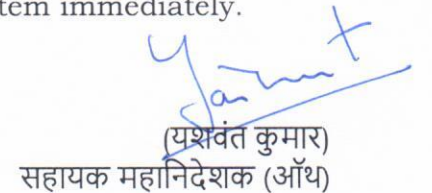 tem immediately.
(यशवंत कुमार)
सहायक महानिदेशक (ऑथ)